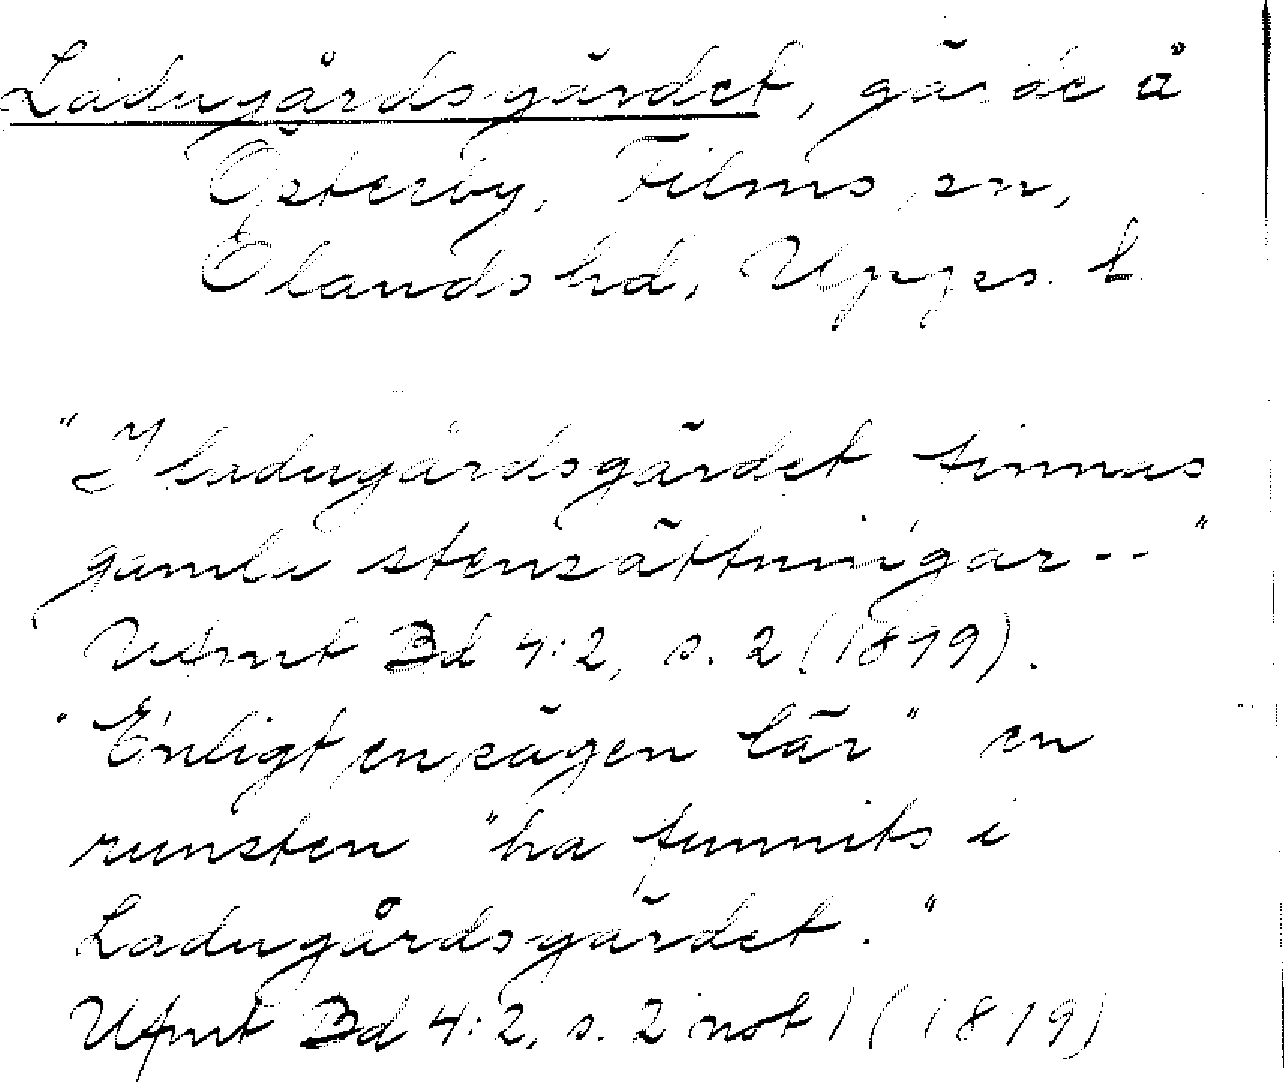 Ladugårdsgärdet, gärde å
Österby, Films sn,
Olands hd, Uppges. l
"I ladugårdsgärdet finnas
gamla stensättningar -- "
Ufmt Bd 4:2, s. 2 (1879).
"Enligt en sägen lär" en
runsten "ha funnits i
Ladugårdsgärdet."
Ufmt Bd 4:2, s. 2 not 1 (1879)